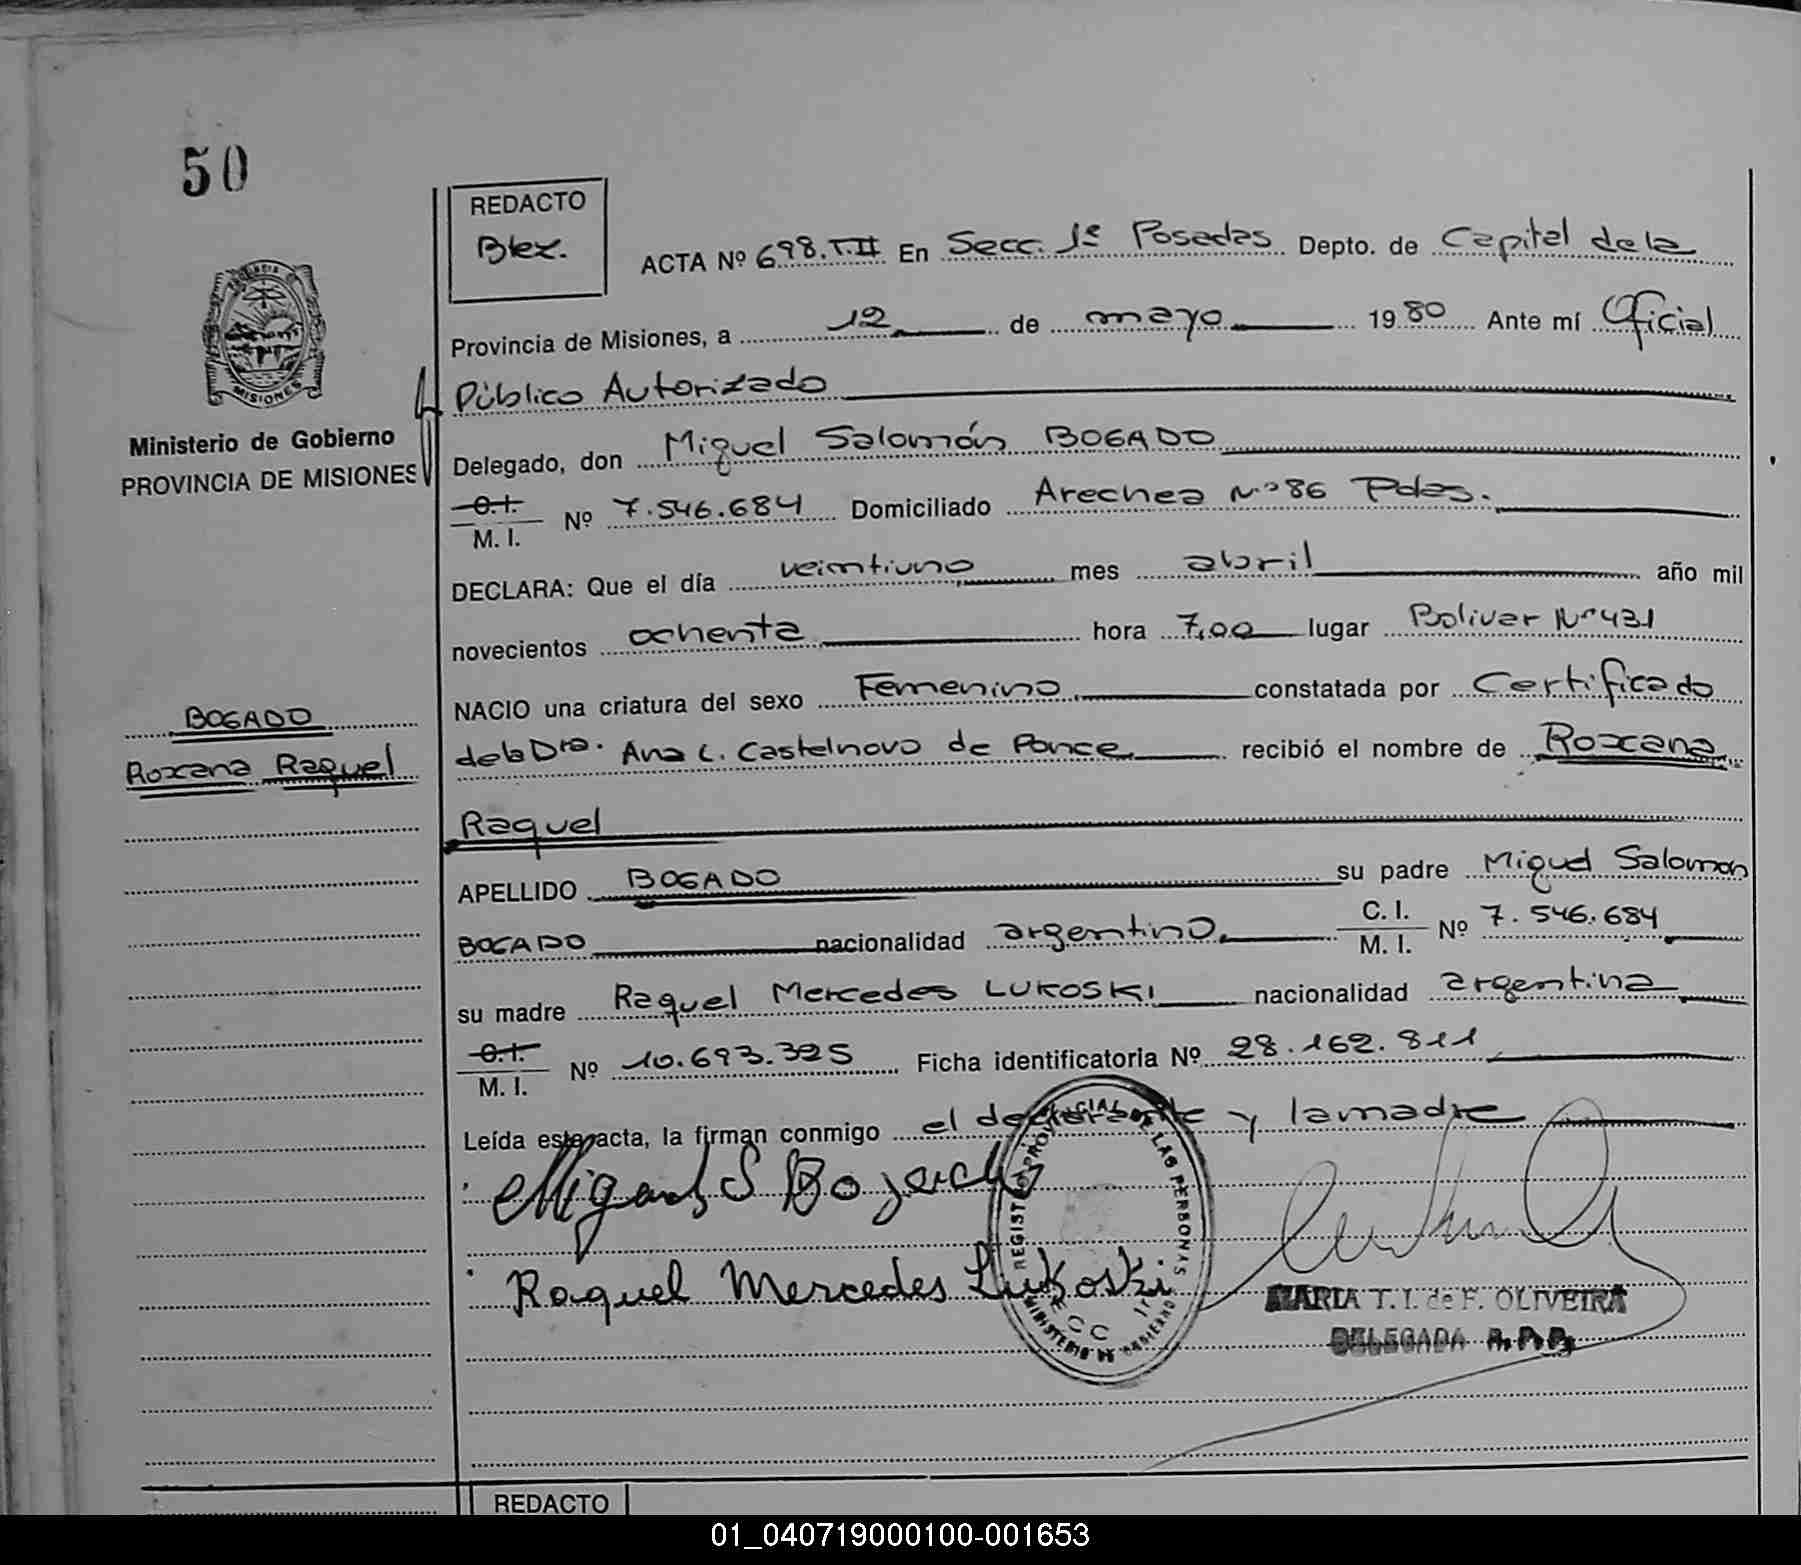 50
REDACTO
Blex.
ACTA Nº 698.T.II En Secc. 1ª Posadas Depto. de Capital de la
Provincia de Misiones, a 12 de mayo 1980 Ante mí Oficial
Público Autorizado
MISIONES
Ministerio de Gobierno
PROVINCIA DE MISIONES
Delegado, don Miguel Salomón BOGADO
C.I.
M. I. Nº 7.546.684 Domiciliado Arechea Nº 86 Pdas.
DECLARA: Que el día veintiuno mes abril año mil
novecientos ochenta hora 7,00 lugar Bolivar Nº 431
NACIO una criatura del sexo Femenino constatada por Certificado
BOGADO
de la Dra. Ana L. Castelnovo de Ponce recibió el nombre de Roxana
Roxana Raquel
Raquel
APELLIDO BOGADO su padre Miguel Salomon
BOGADO nacionalidad argentino C. I.
M. I. Nº 7.546.684
su madre Raquel Mercedes LUKOSKI nacionalidad argentina
C.I.
M. I. Nº 10.693.325 Ficha identificatoria Nº 28.162.811
Leída este acta, la firman conmigo el declarante y la madre
Miguel S Bogado
Raquel Mercedes Lukoski
REGISTRO PROVINCIAL DE LAS PERSONAS
MINISTERIO DE GOBIERNO
MARIA T. I. de F. OLIVEIRA
DELEGADA R.P.P.
REDACTO
01_040719000100-001653